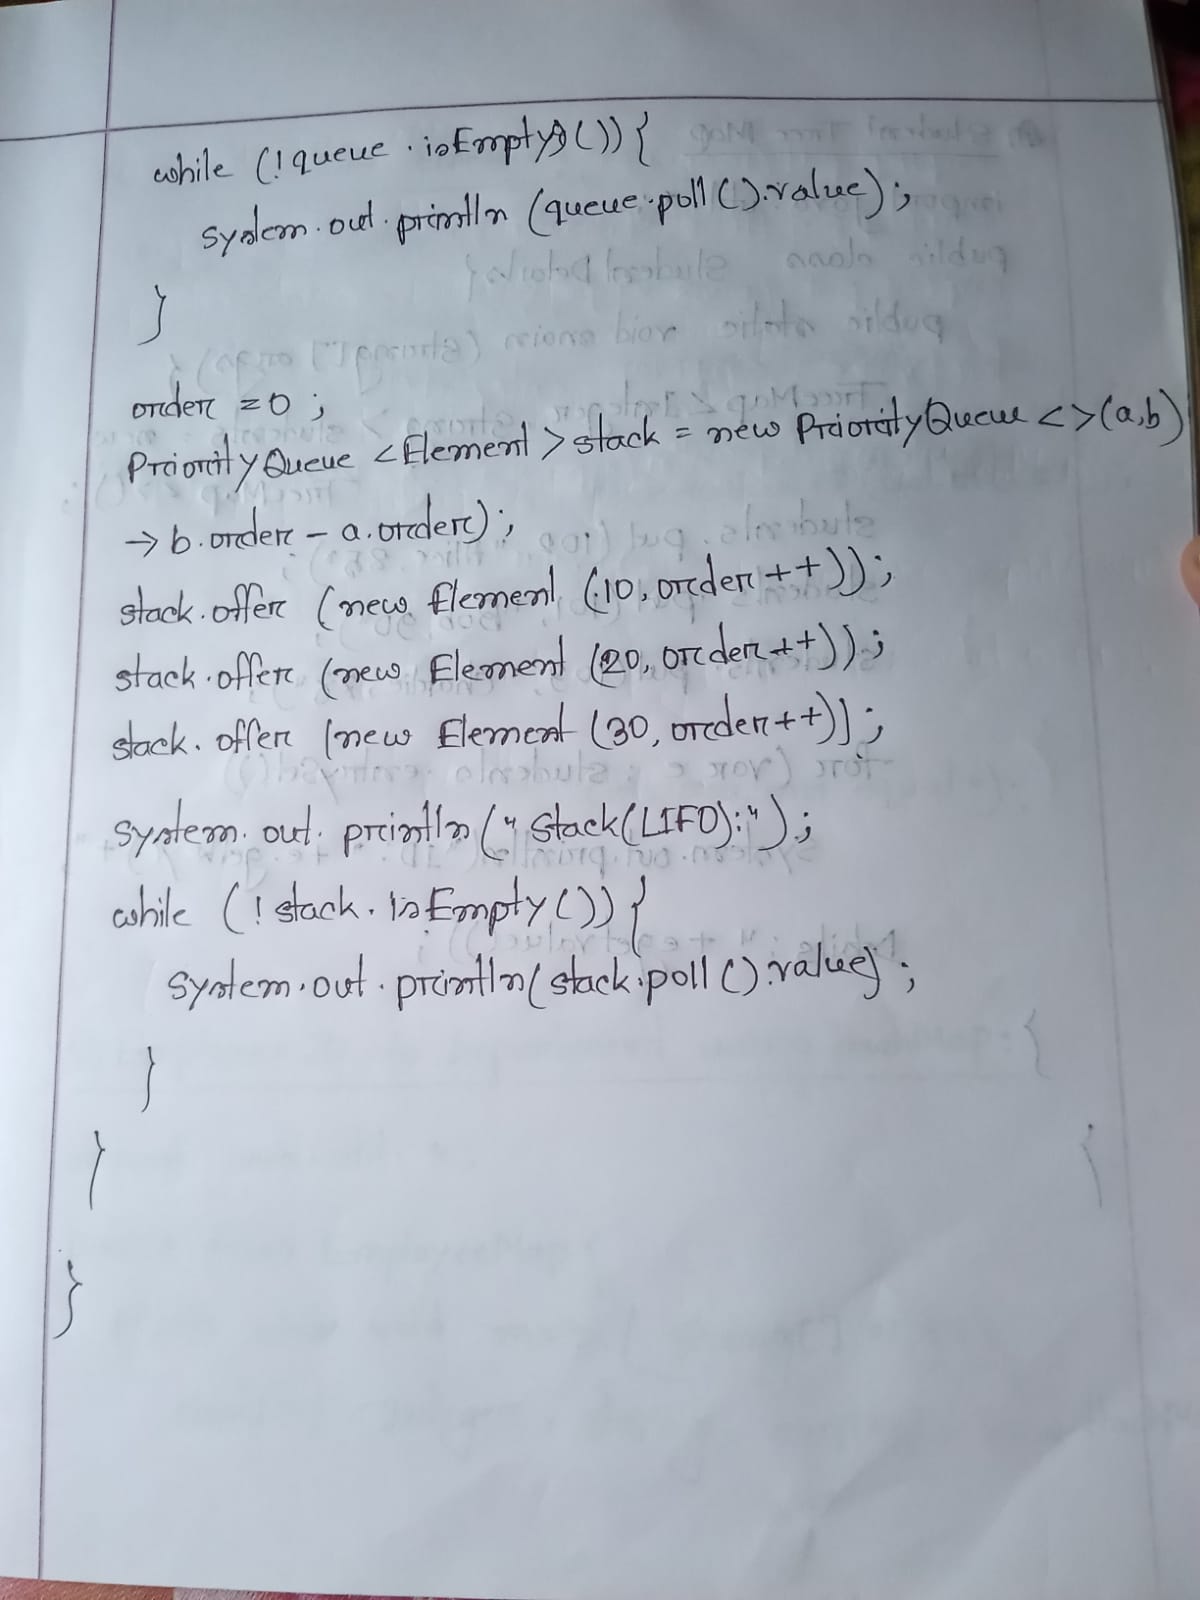 while (!queue.isEmpty()) {
System.out.println (queue.poll().value);
}
order = 0;
PriorityQueue <Element> stack = new PriorityQueue <>(a,b)
→ b.order - a.order);
stack.offer (new Element (10, order++));
stack.offer (new Element (20, order++));
stack.offer (new Element (30, order++));
System.out.println ("Stack(LIFO):");
while (!stack.isEmpty()) {
System.out.println(stack.poll().value);
}
}
}